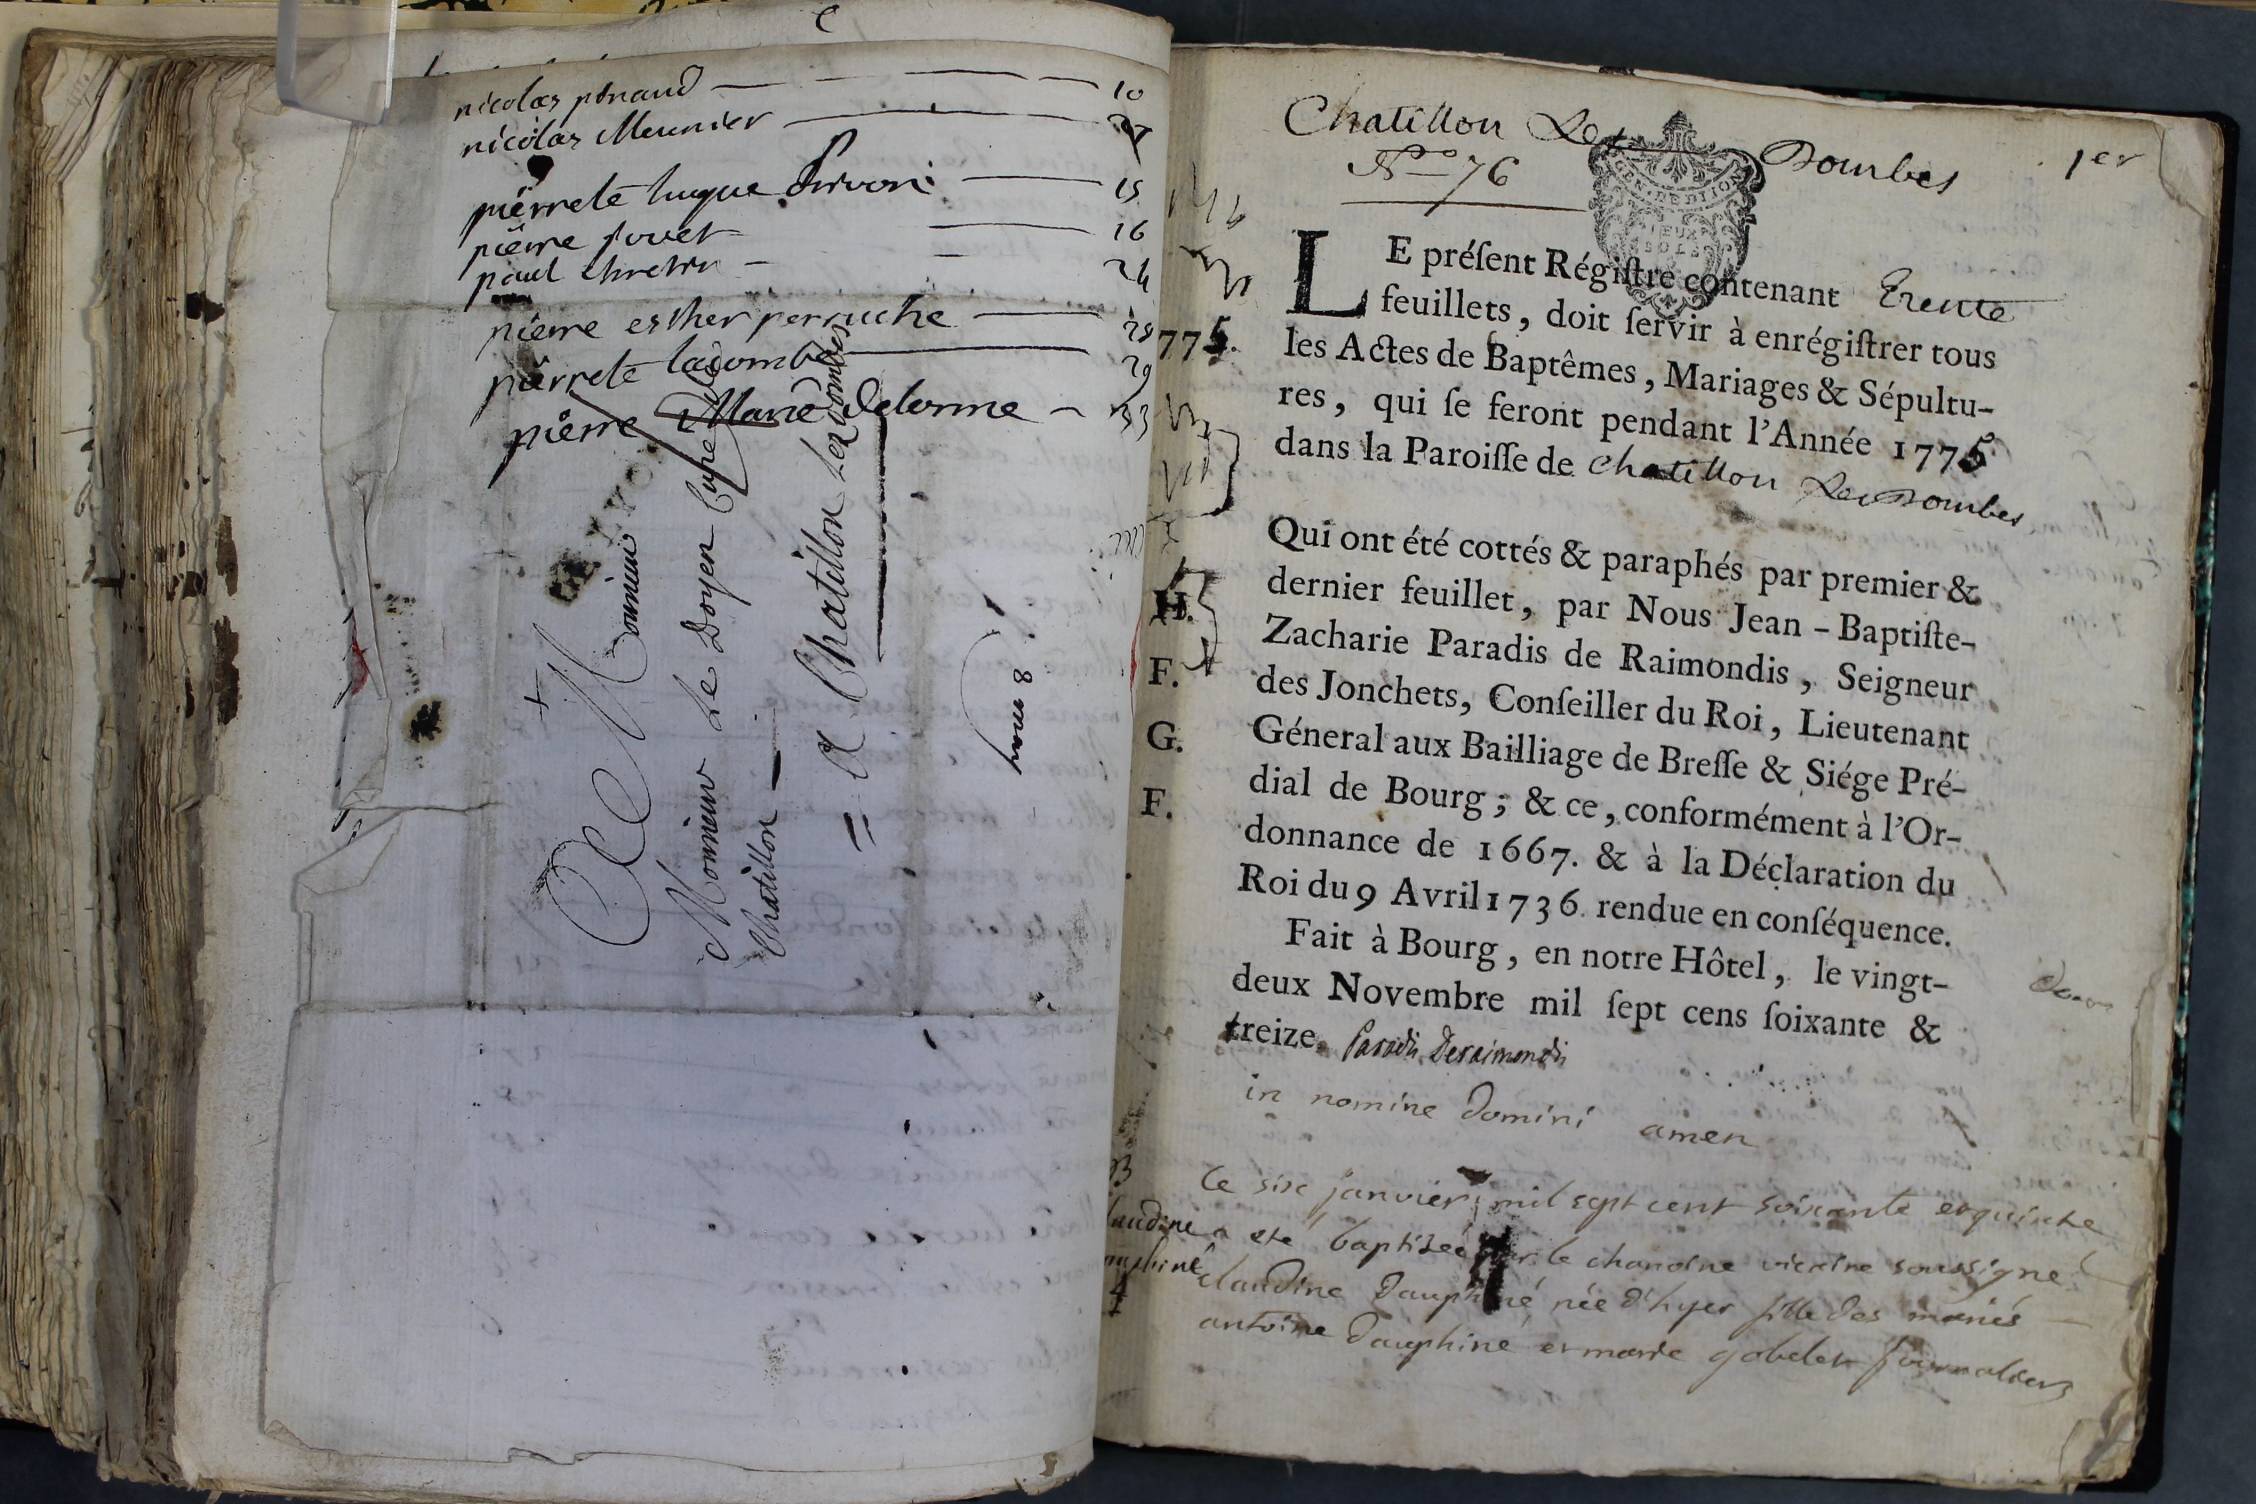 nicolas penaud 10
nicolas Meunier
pierrete huque 15
pierre jouet 16
paul chretien 24
pierre esther perruche 28
pierrete lacombe 29
pierre Marie Delorme 33
A Monsieur
Monsieur Le Doyen Curé de
Chatillon
= a Chatillon Les Dombes
Chatillon Les Dombes 1er
No 76
GEN. DE DIJON
DEUX
SOLS
LE préſent Régiſtre contenant Trente
feuillets, doit ſervir à enrégiſtrer tous
1775. les Actes de Baptêmes, Mariages & Sépultu-
res, qui ſe feront pendant l'Année 1775
dans la Paroiſſe de Chatillon Les Dombes
Qui ont été cottés & paraphés par premier &
H. dernier feuillet, par Nous Jean-Baptiſte-
Zacharie Paradis de Raimondis, Seigneur
F. des Jonchets, Conſeiller du Roi, Lieutenant
G. Géneral aux Bailliage de Breſſe & Siége Pré-
F. dial de Bourg; & ce, conformément à l'Or-
donnance de 1667. & à la Déclaration du
Roi du 9 Avril 1736. rendue en conſéquence.
Fait à Bourg, en notre Hôtel, le vingt-
deux Novembre mil ſept cens ſoixante &
treize. Paradis Deraimondis
in nomine Domini amen
B
Le six janvier mil sept cent soixante et quinze
laudine a eté baptizée par le chanoine vicaire soussigné
claudine Dauphiné née d'hyer fille des mariés
antoine Dauphiné et marie gobelet journaliers